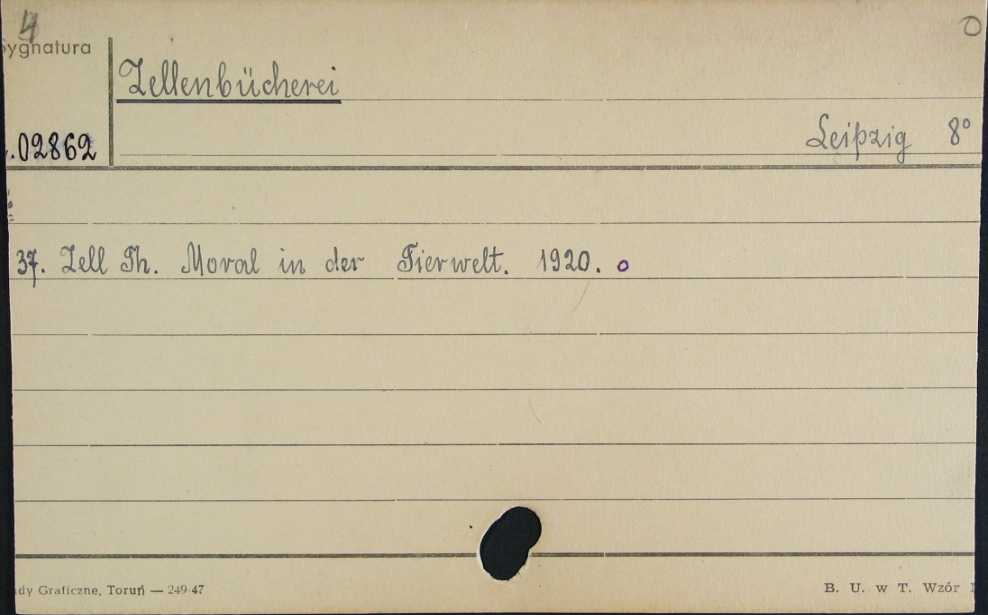 4
0
Sygnatura
Zellenbücherei
.02862
Leipzig 8°
37. Zell Th. Moral in der Tierwelt. 1920. o
Graficzne, Toruń — 249-47
B. U. w T. Wzór